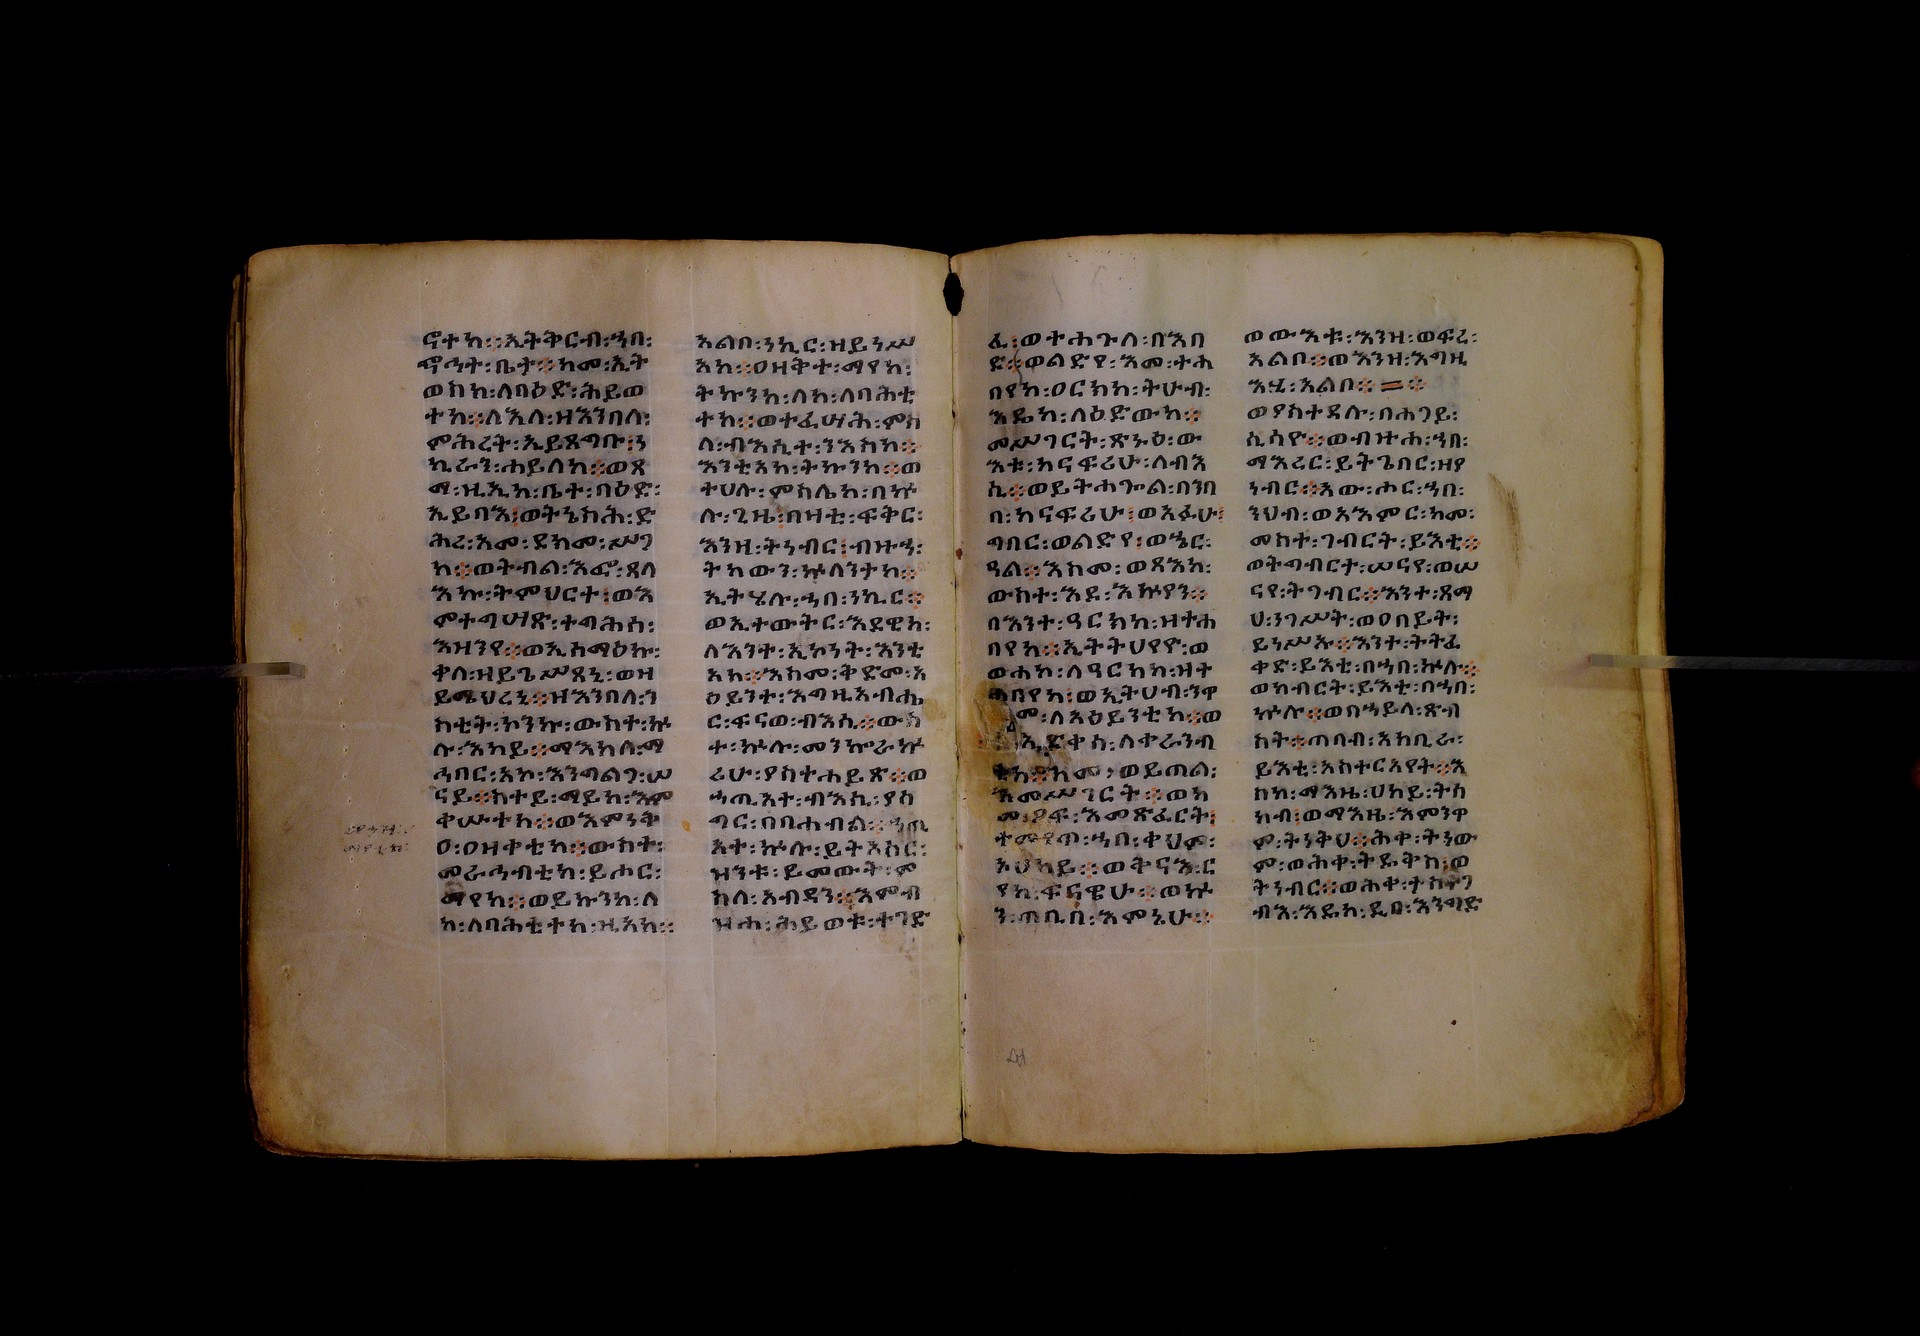 ኖተከ፡፡ኢትቅርብ፡ኀበ፡
ኆኅት፡ቤታ፡፡ከመ፡ኢት
ወክከ፡ለባዕድ፡ሕይወ
ተከ፡፡ለእለ፡ዘእንበለ፡
ምሕረት፡ኢይጽግቡ፡ን
ኪራን፡ሐይለከ፡፡ወጻ
ማ፡ዚኢከ፡ቤተ፡በዕድ፡
ኢይባእ፡ወትኔስሕ፡ድ
ሕረ፡አመ፡ደክመ፡ሥጋ
ከ፡፡ወትብል፡እፎ፡ጸላ
እኩ፡ትምህርተ፡ወእ
ምተግሣጽ፡ተግሕሰ፡
እዝንየ፡፡ወኢሰማዕኩ፡
ቃለ፡ዘይጌሥጸኒ፡ወዘ
ይሜህረኒ፡፡ዘእንበለ፡ን
ስቲት፡ኮንኩ፡ውስተ፡ኵ
ሉ፡እከይ፡፡ማእከለ፡ማ
ኅበር፡አኮ፡እንግልጋ፡ሠ
ናይ፡፡ስተይ፡ማይከ፡እም
ቀሡተከ፡፡ወእምነቅ
ዐ፡ዐዘቅቲከ፡፡ውስተ፡
መራኅብቲከ፡ይሖር፡
ማየከ፡፡ወይኩንከ፡ለ
ከ፡ለባሕቲተከ፡ዚአከ፡፡
አልቦ፡ነኪር፡ዘይነሥ
አከ፡፡ዐዘቅተ፡ማየከ፡
ትኩንከ፡ለከ፡ለባሕቲ
ተከ፡፡ወተፈሣሕ፡ምስ
ለ፡ብእሲተ፡ንእስከ፡፡
እንቲአከ፡ትኩንከ፡፡ወ
ተሀሉ፡ምስሌከ፡በኵ
ሉ፡ጊዜ፡በዛቲ፡ፍቅር፡
እንዘ፡ትነብር፡ብዙኃ፡
ትከውን፡ኵለንታከ፡፡
ኢትሄሉ፡ኀበ፡ነኪር፡፡
ወኢተውትር፡እደዊከ፡
ለእንተ፡ኢኮነት፡እንቲ
አከ፡፡እስመ፡ቅድመ፡አ
ዕይንተ፡እግዚአብሔ
ር፡ፍናወ፡ብእሲ፡፡ውስ
ተ፡ኵሉ፡መንኰራኵ
ሪሁ፡ያስተሐይጽ፡፡ወ
ኀጢአት፡ብእሲ፡ያስ
ግር፡በባሐብል፡፡ኀጢ
አተ፡ኵሉ፡ይትአሰር፡
ዝንቱ፡ይመውት፡ም
ስለ፡አብዳን፡፡እምብ
ዝኀ፡ሕይወቱ፡ተገድ
ፈ፡ወተሐጉለ፡በእበ
ድ፡፡ወልድየ፡እመ፡ተሐ
በየከ፡ዐርክከ፡ትሁብ፡
እዴከ፡ለዕድውከ፡፡
መሥገርት፡ጽኑዕ፡ው
እቱ፡ከናፍሪሁ፡ለብእ
ሲ፡፡ወይትሐጐል፡በንበ
በ፡ከናፍሪሁ፡ወአፉሁ፡
ግበር፡ወልድየ፡ወኄር፡
ዓል፡፡እስመ፡ወጻእከ፡
ውስተ፡እደ፡እኩየን፡፡
በእንተ፡ዓርክከ፡ዝተሐ
በየከ፡፡ኢትትሀየዮ፡ወ
ወሐኮ፡ለዓርክከ፡ዝተ
ሐበየከ፡ወኢትሀብ፡ንዋ
መ፡ለአዕይንቲከ፡፡ወ
ኢድቃስ፡ለቀራንብ
ቲከ፡፡ከመ፡ወይጠል፡
እመሥገርት፡፡ወከ
መ፡ዖፍ፡እመጽፈርት፡
ተመየጥ፡ኀበ፡ቀህም፡
አሀካይ፡፡ወቅናእ፡ር
የከ፡ፍናዊሁ፡፡ወኩ
ን፡ጠቢበ፡እምኔሁ፡፡
ወውእቱ፡እንዘ፡ወፍረ፡
አልቦ፡፡ወእንዘ፡እግዚ
እሂ፡አልቦ፡፡＝፡፡
ወያስተዳሉ፡በሐጋይ፡
ሲሳዮ፡፡ወብዙሐ፡ኀበ፡
ማእረር፡ይትጌበር፡ዘየ
ነብር፡፡አው፡ሖር፡ኀበ፡
ንህብ፡ወአእምር፡ከመ፡
መስተ፡ገብርት፡ይእቲ፡፡
ወትግብርተ፡ሠናየ፡ወሠ
ናየ፡ትገብር፡፡እንተ፡ጻማ
ሀ፡ነገሥት፡ወዐበይት፡
ይነሥኡ፡፡እንተ፡ትትፈ
ቀድ፡ይእቲ፡በኀበ፡ኵሉ፡፡
ወክብርት፡ይእቲ፡በኀበ፡
ኵሉ፡፡ወበኃይላ፡ጽብ
ስት፡፡ጠባብ፡አክቢራ፡
ይእቲ፡አስተርአየት፡፡እ
ስከ፡ማእዜ፡ሀካይ፡ትሰ
ክብ፡ወማእዜ፡እምንዋ
ም፡ትነቅህ፡፡ሕቀ፡ትነው
ም፡ወሕቀ፡ትዴቅስ፡ወ
ትነብር፡፡ወሕቀ፡ተሐቅ
ብእ፡እዴከ፡ዲበ፡እንግድ